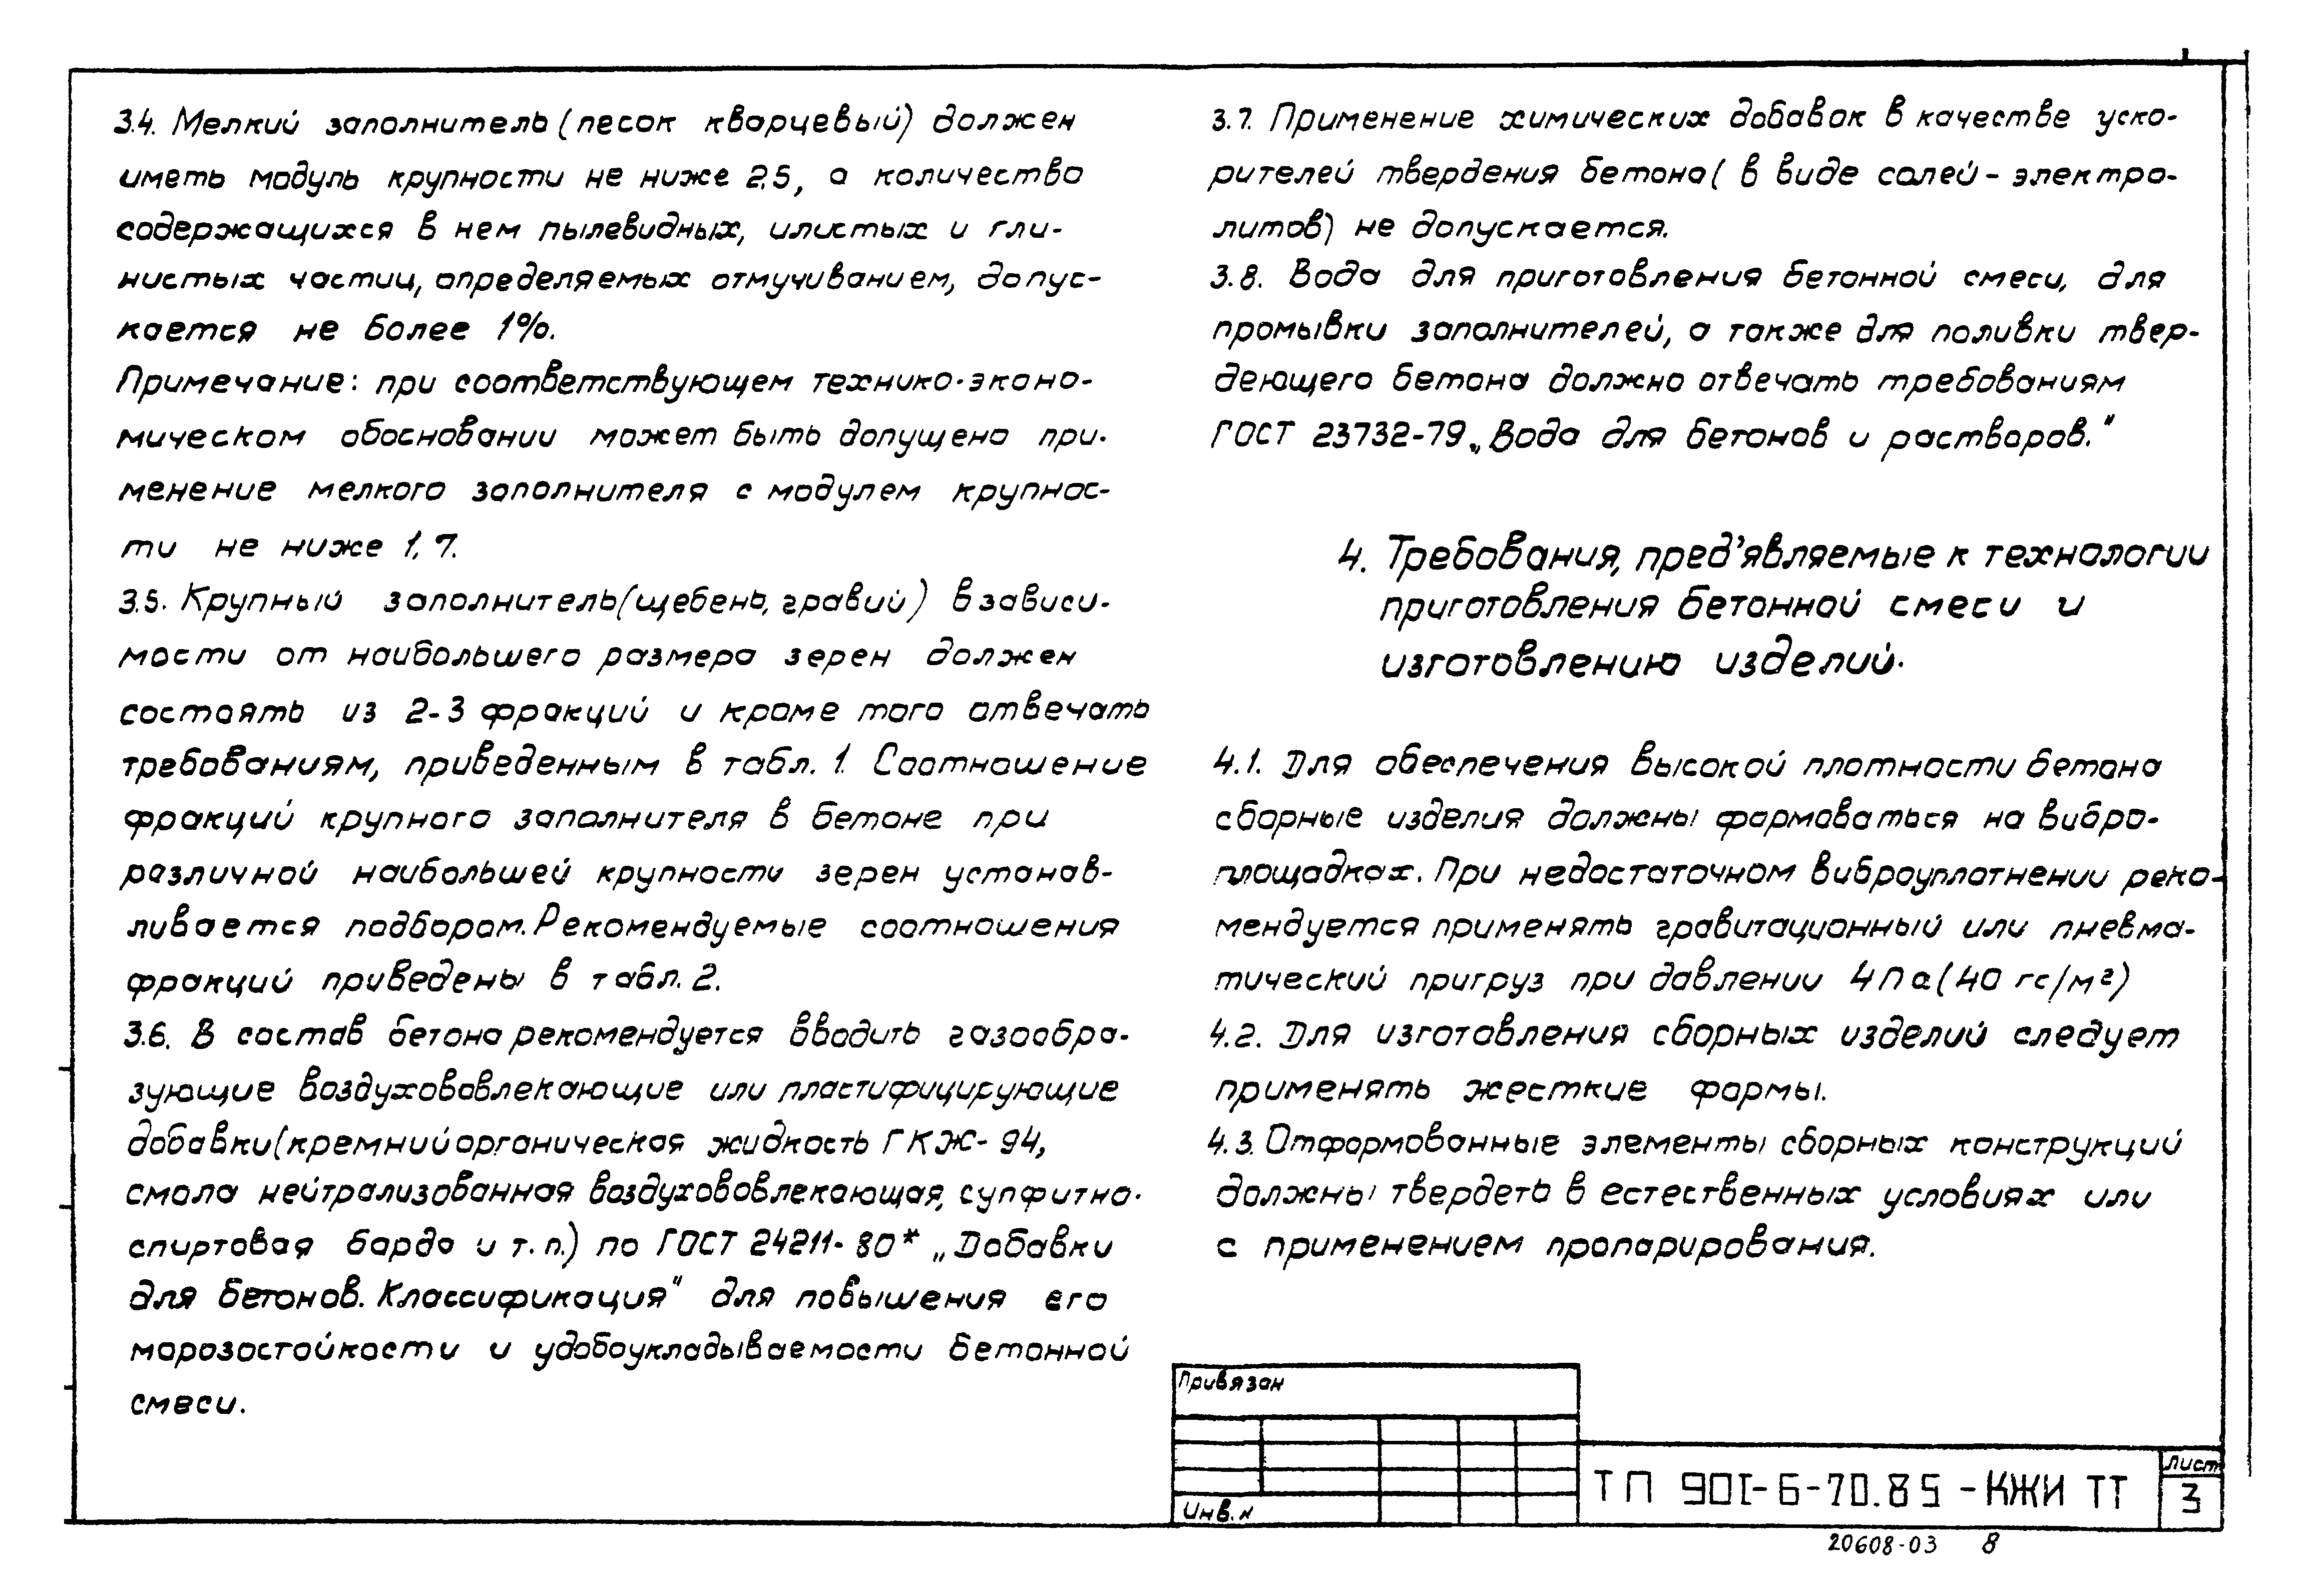 3.4. Мелкий заполнитель (песок кварцевый) должен
иметь модуль крупности не ниже 2.5, а количество
содержащихся в нем пылевидных, илистых и гли-
нистых частиц, определяемых отмучиванием, допус-
кается не более 1%.
Примечание: при соответствующем технико-эконо-
мическом обосновании может быть допущено при-
менение мелкого заполнителя с модулем крупнос-
ти не ниже 1,7.
3.5. Крупный заполнитель (щебень, гравий) в зависи-
мости от наибольшего размера зерен должен
состоять из 2-3 фракций и кроме того отвечать
требованиям, приведенным в табл. 1. Соотношение
фракций крупного заполнителя в бетоне при
различной наибольшей крупности зерен устанав-
ливается подбором. Рекомендуемые соотношения
фракций приведены в табл. 2.
3.6. В состав бетона рекомендуется вводить газообра-
зующие воздухововлекающие или пластифицирующие
добавки (кремнийорганическая жидкость ГКЖ-94,
смола нейтрализованная воздухововлекающая, супфитно-
спиртовая бардо и т.п.) по ГОСТ 24211-80* „Добавки
для бетонов. Классификация" для повышения его
морозостойкости и удобоукладываемости бетонной
смеси.
3.7. Применение химических добавок в качестве уско-
рителей твердения бетона (в виде солей-электро-
литов) не допускается.
3.8. Вода для приготовления бетонной смеси, для
промывки заполнителей, а также для поливки твер-
деющего бетона должно отвечать требованиям
ГОСТ 23732-79 „Вода для бетонов и растворов."
4. Требования, пред'являемые к технологии
приготовления бетонной смеси и
изготовлению изделий.
4.1. Для обеспечения высокой плотности бетона
сборные изделия должны формоваться на вибро-
площадках. При недостаточном виброуплотнении реко-
мендуется применять гравитационный или пневма-
тический пригруз при давлении 4Па (40 гс/м²)
4.2. Для изготовления сборных изделий следует
применять жесткие формы.
4.3. Отформованные элементы сборных конструкций
должны твердеть в естественных условиях или
с применением пропарирования.
Привязан
Инв. N
ТП 901-6-70.85 - КЖИ ТТ
Лист
3
20608-03 8